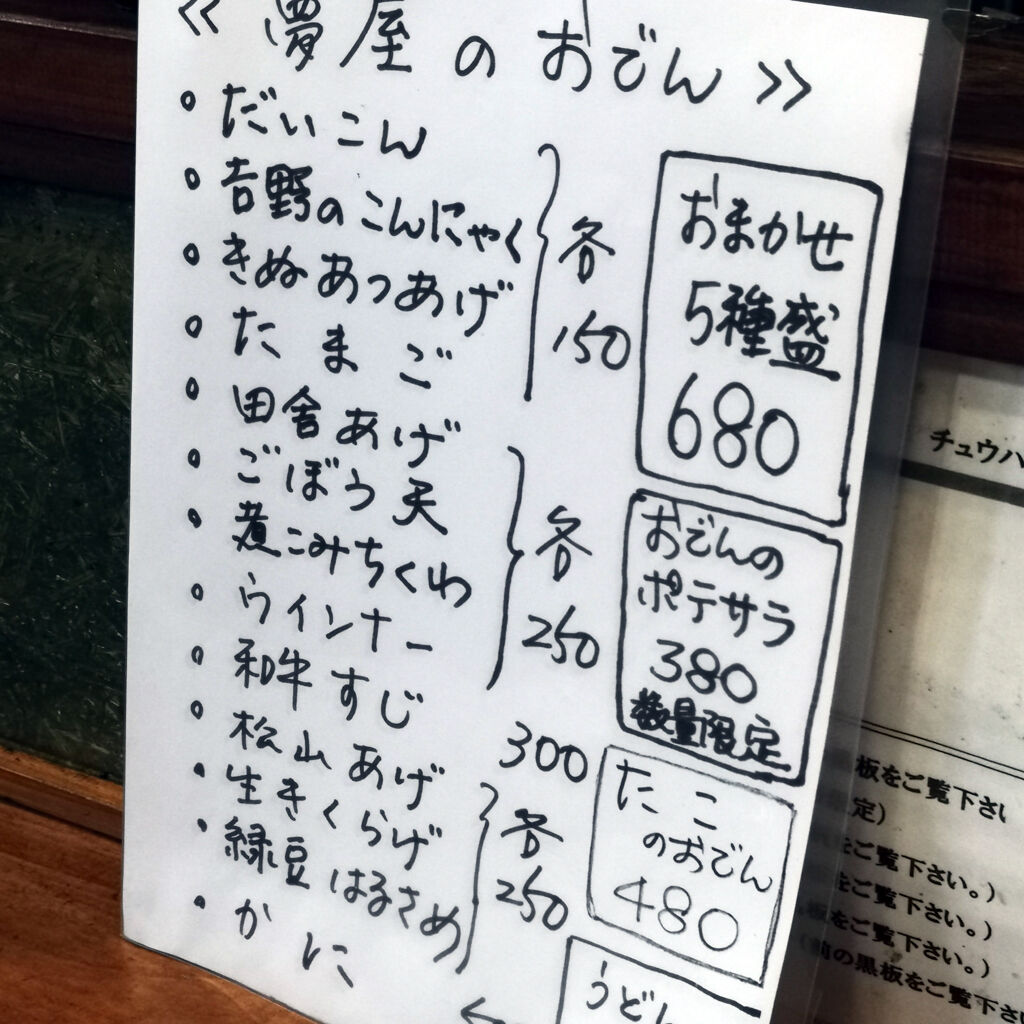 ≪ 夢屋のおでん ≫
・だいこん
・吉野のこんにゃく
・きぬあつあげ
・たまご
各150
・田舎あげ
・ごぼう天
・煮こみちくわ
・ウインナー
各250
・和牛すじ
300
・松山あげ
・生きくらげ
・緑豆はるさめ
各250
・かに
おまかせ
5種盛
680
おでんの
ポテサラ
380
数量限定
たこ
のおでん
480
うどん
チュウハ
板をご覧下さい
定)
をご覧下さい。)
をご覧下さい。)
板をご覧下さい。)
前の黒板をご覧下さい